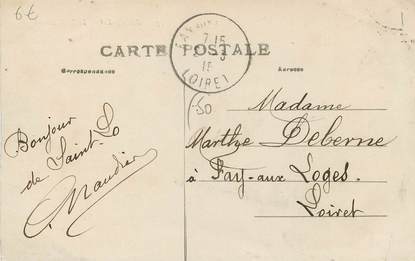 6€
CARTE POSTALE
Correspondance
Adresse
7 15
18
LOIRET
50
Bonjour
de Saint-Lô
Madame
Marthe Deberne
à Fay-aux Loges
Loiret